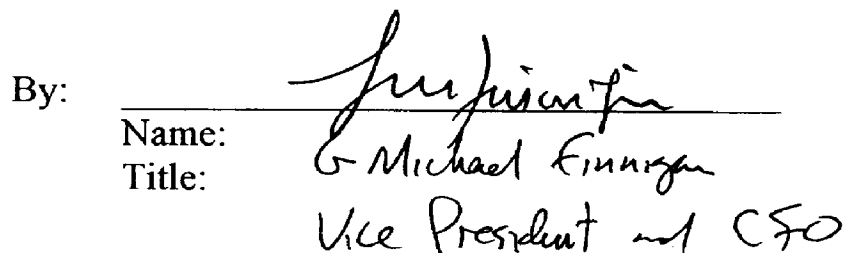 By:
Name:
G Michael Finnigan
Title:
Vice President and CFO